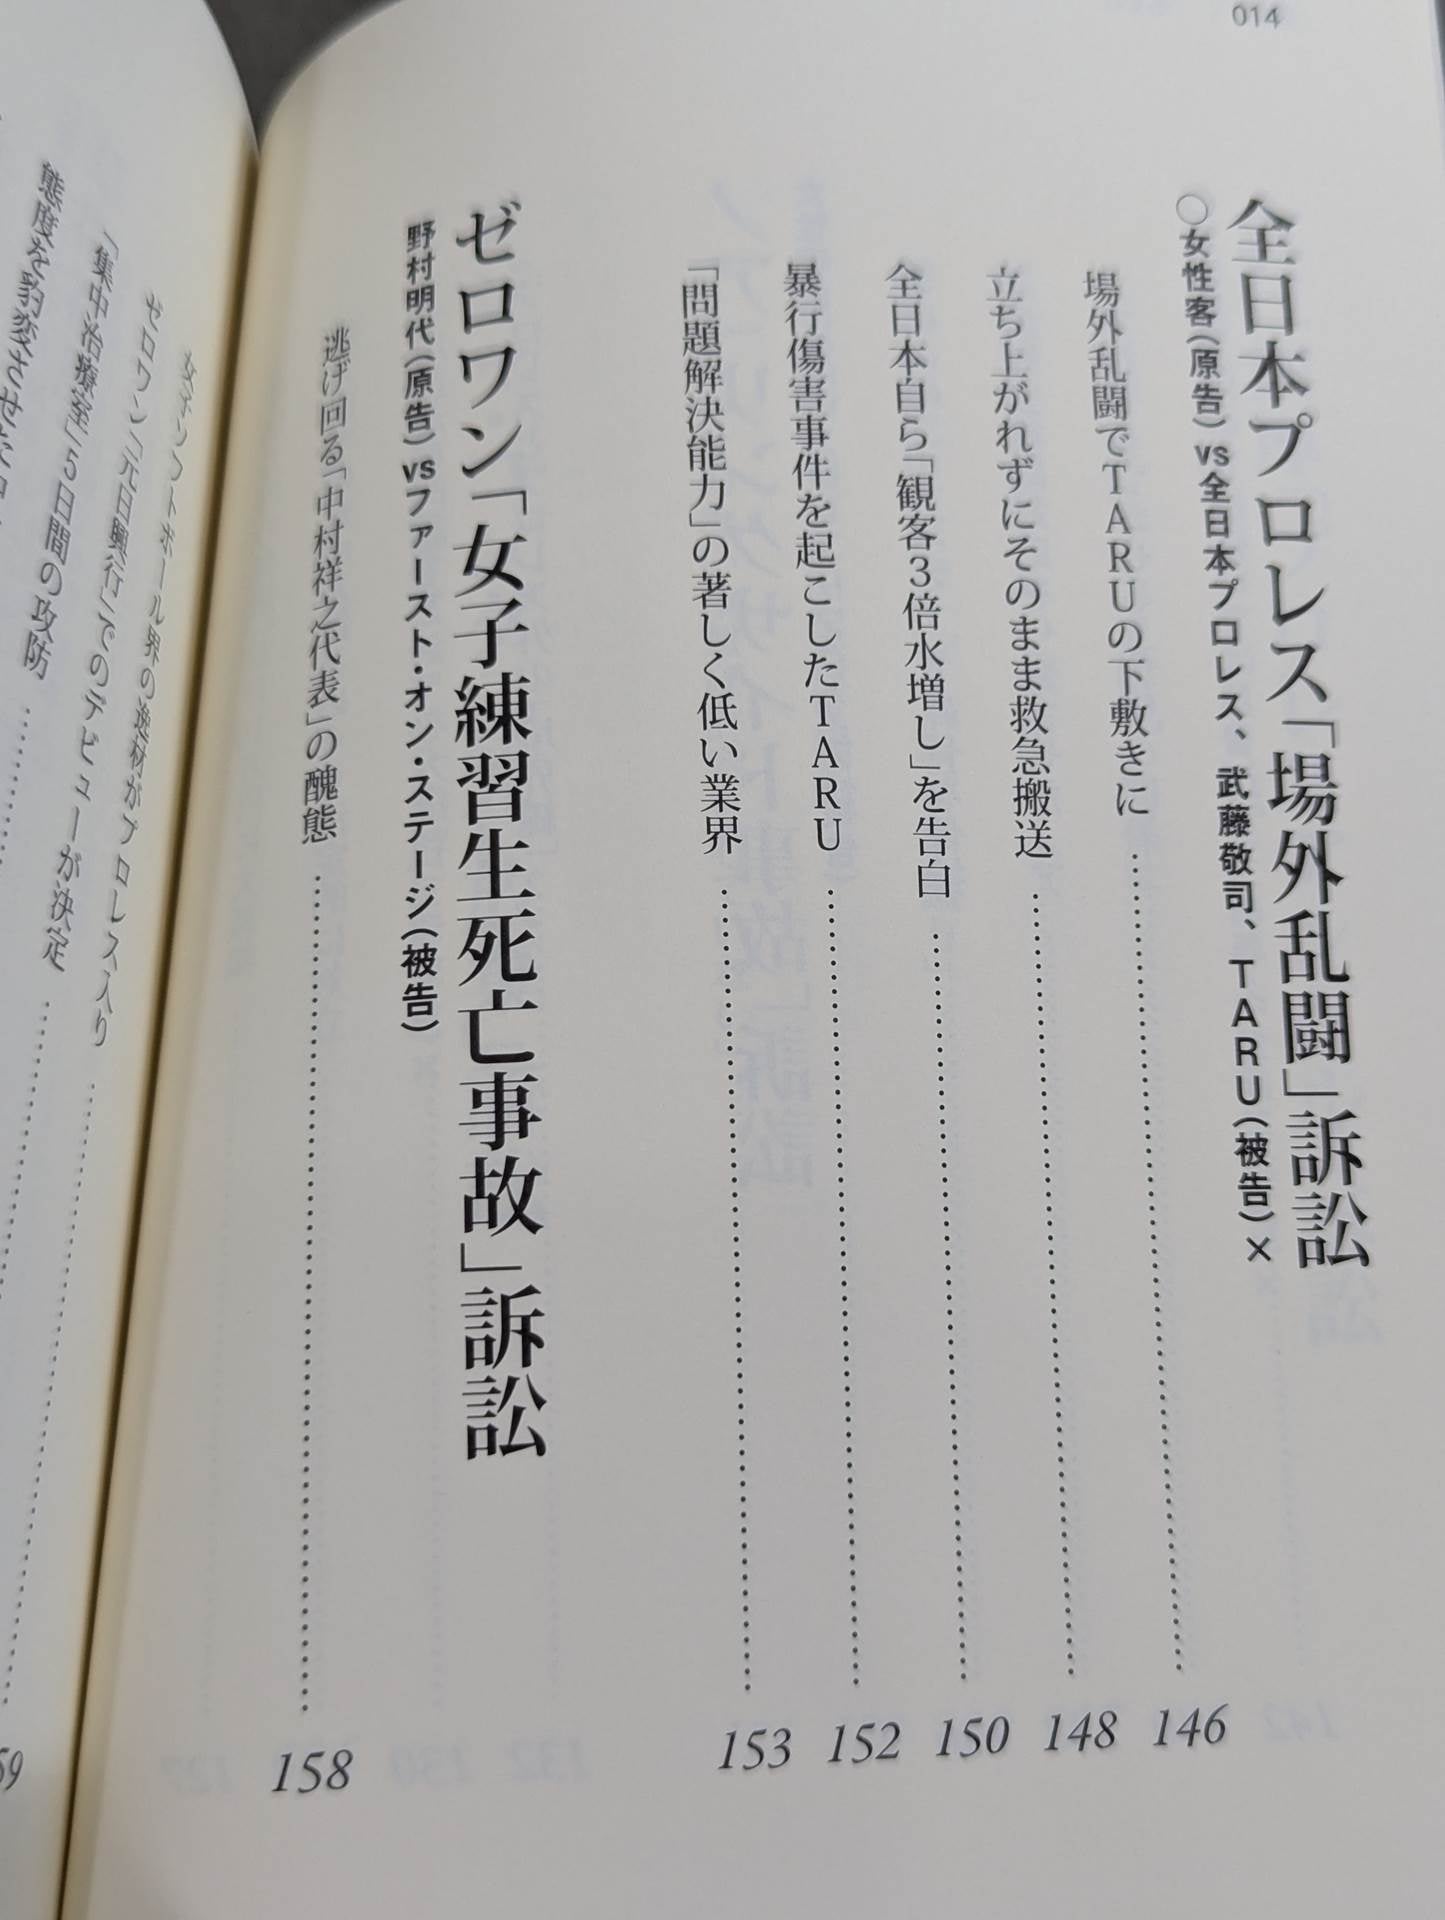 014
全日本プロレス「場外乱闘」訴訟
○女性客(原告)vs全日本プロレス、武藤敬司、TARU(被告)×
場外乱闘でTARUの下敷きに……146
立ち上がれずにそのまま救急搬送……148
全日本自ら「観客3倍水増し」を告白……150
暴行傷害事件を起こしたTARU……152
「問題解決能力」の著しく低い業界……153
ゼロワン「女子練習生死亡事故」訴訟
野村明代(原告)vsファースト・オン・ステージ(被告)
逃げ回る「中村祥之代表」の醜態……158
女子ソフトボール界の逸材がプロレス入り
ゼロワン「元日興行」でのデビューが決定
「集中治療室」5日間の攻防
態度を豹変させた